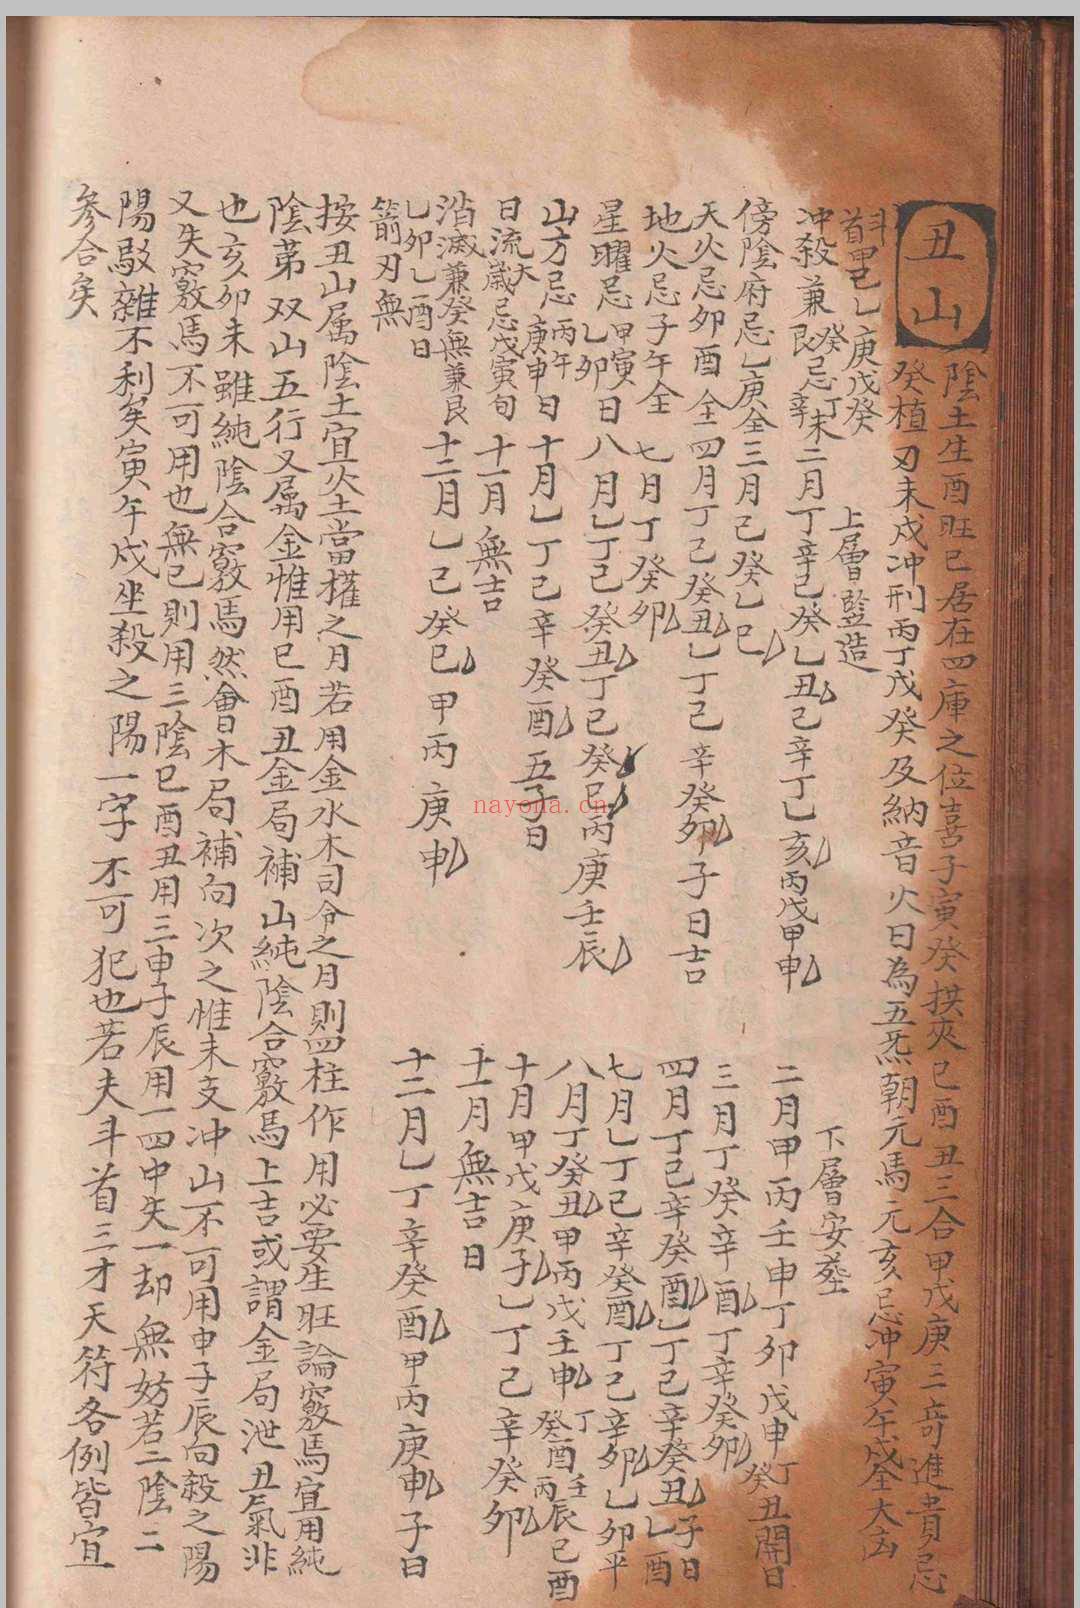 丑山
陰土生酉旺巳居在四庫之位喜子寅癸拱夾巳酉丑三合甲戊庚三奇進貴忌
癸植刃未戍冲刑丙丁戊癸及納音火日為五炁朝元馬元亥忌冲寅午戍全大凶
斗首甲己乙庚戊癸
上層豎造
下層安葬
冲殺兼艮癸忌丁未辛 二月丁辛己癸乙丑己辛丁乙亥丙戊甲申
二月甲丙壬申丁卯戊申丁癸丑開日
傍陰府忌乙庚全 三月己癸乙巳
三月丁癸辛酉丁辛癸卯
天火忌卯酉全 四月丁己癸丑乙丁己辛癸卯子日吉
四月丁己辛癸酉乙丁己辛癸丑乙酉子日
地火忌子午全 七月丁癸卯
七月乙丁己辛癸酉丁己辛卯乙卯平
星曜忌甲寅乙卯日 八月乙丁己癸丑丁己癸巳丙庚壬辰
八月丁癸丑甲丙戊壬申丁癸酉壬丙辰己酉
山方忌丙午庚申日 十月乙丁己辛癸酉五子日
十月甲戊庚子乙丁己辛癸卯
日流太歲忌戊寅旬 十一月無吉
十一月無吉日
消滅兼癸無兼艮乙卯乙酉日 十二月乙己癸巳甲丙庚申
十二月乙丁辛癸酉甲丙庚申子日
箭刃無
按丑山属陰土宜火土當權之月若用金水木司令之月則四柱作用必要生旺論竅馬宜用純
陰苐双山五行又属金惟用巳酉丑金局補山純陰合竅馬上吉或謂金局泄丑氣非
也亥卯未雖純陰合竅馬然會木局補向次之惟未支冲山不可用申子辰向殺之陽
又失竅馬不可用也無已則用三陰巳酉丑用三申子辰用一四中失一却無妨若二陰二
陽駁雜不利矣寅午戍坐殺之陽一字不可犯也若夫斗首三才天符各例皆宜
參合矣
nayona.cn